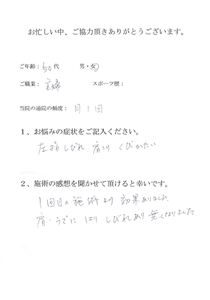 お忙しい中、ご協力頂きありがとうございます。
ご年齢：50代　男・女
ご職業：主婦　スポーツ歴：
当院の通院の頻度：月1回
1、お悩みの症状をご記入ください。
左顔しびれ 肩こり くびがいたい
2、施術の感想を聞かせて頂けると幸いです。
1回目の施術より効果ありました
肩・うでに はり しびれあり 無くなりました